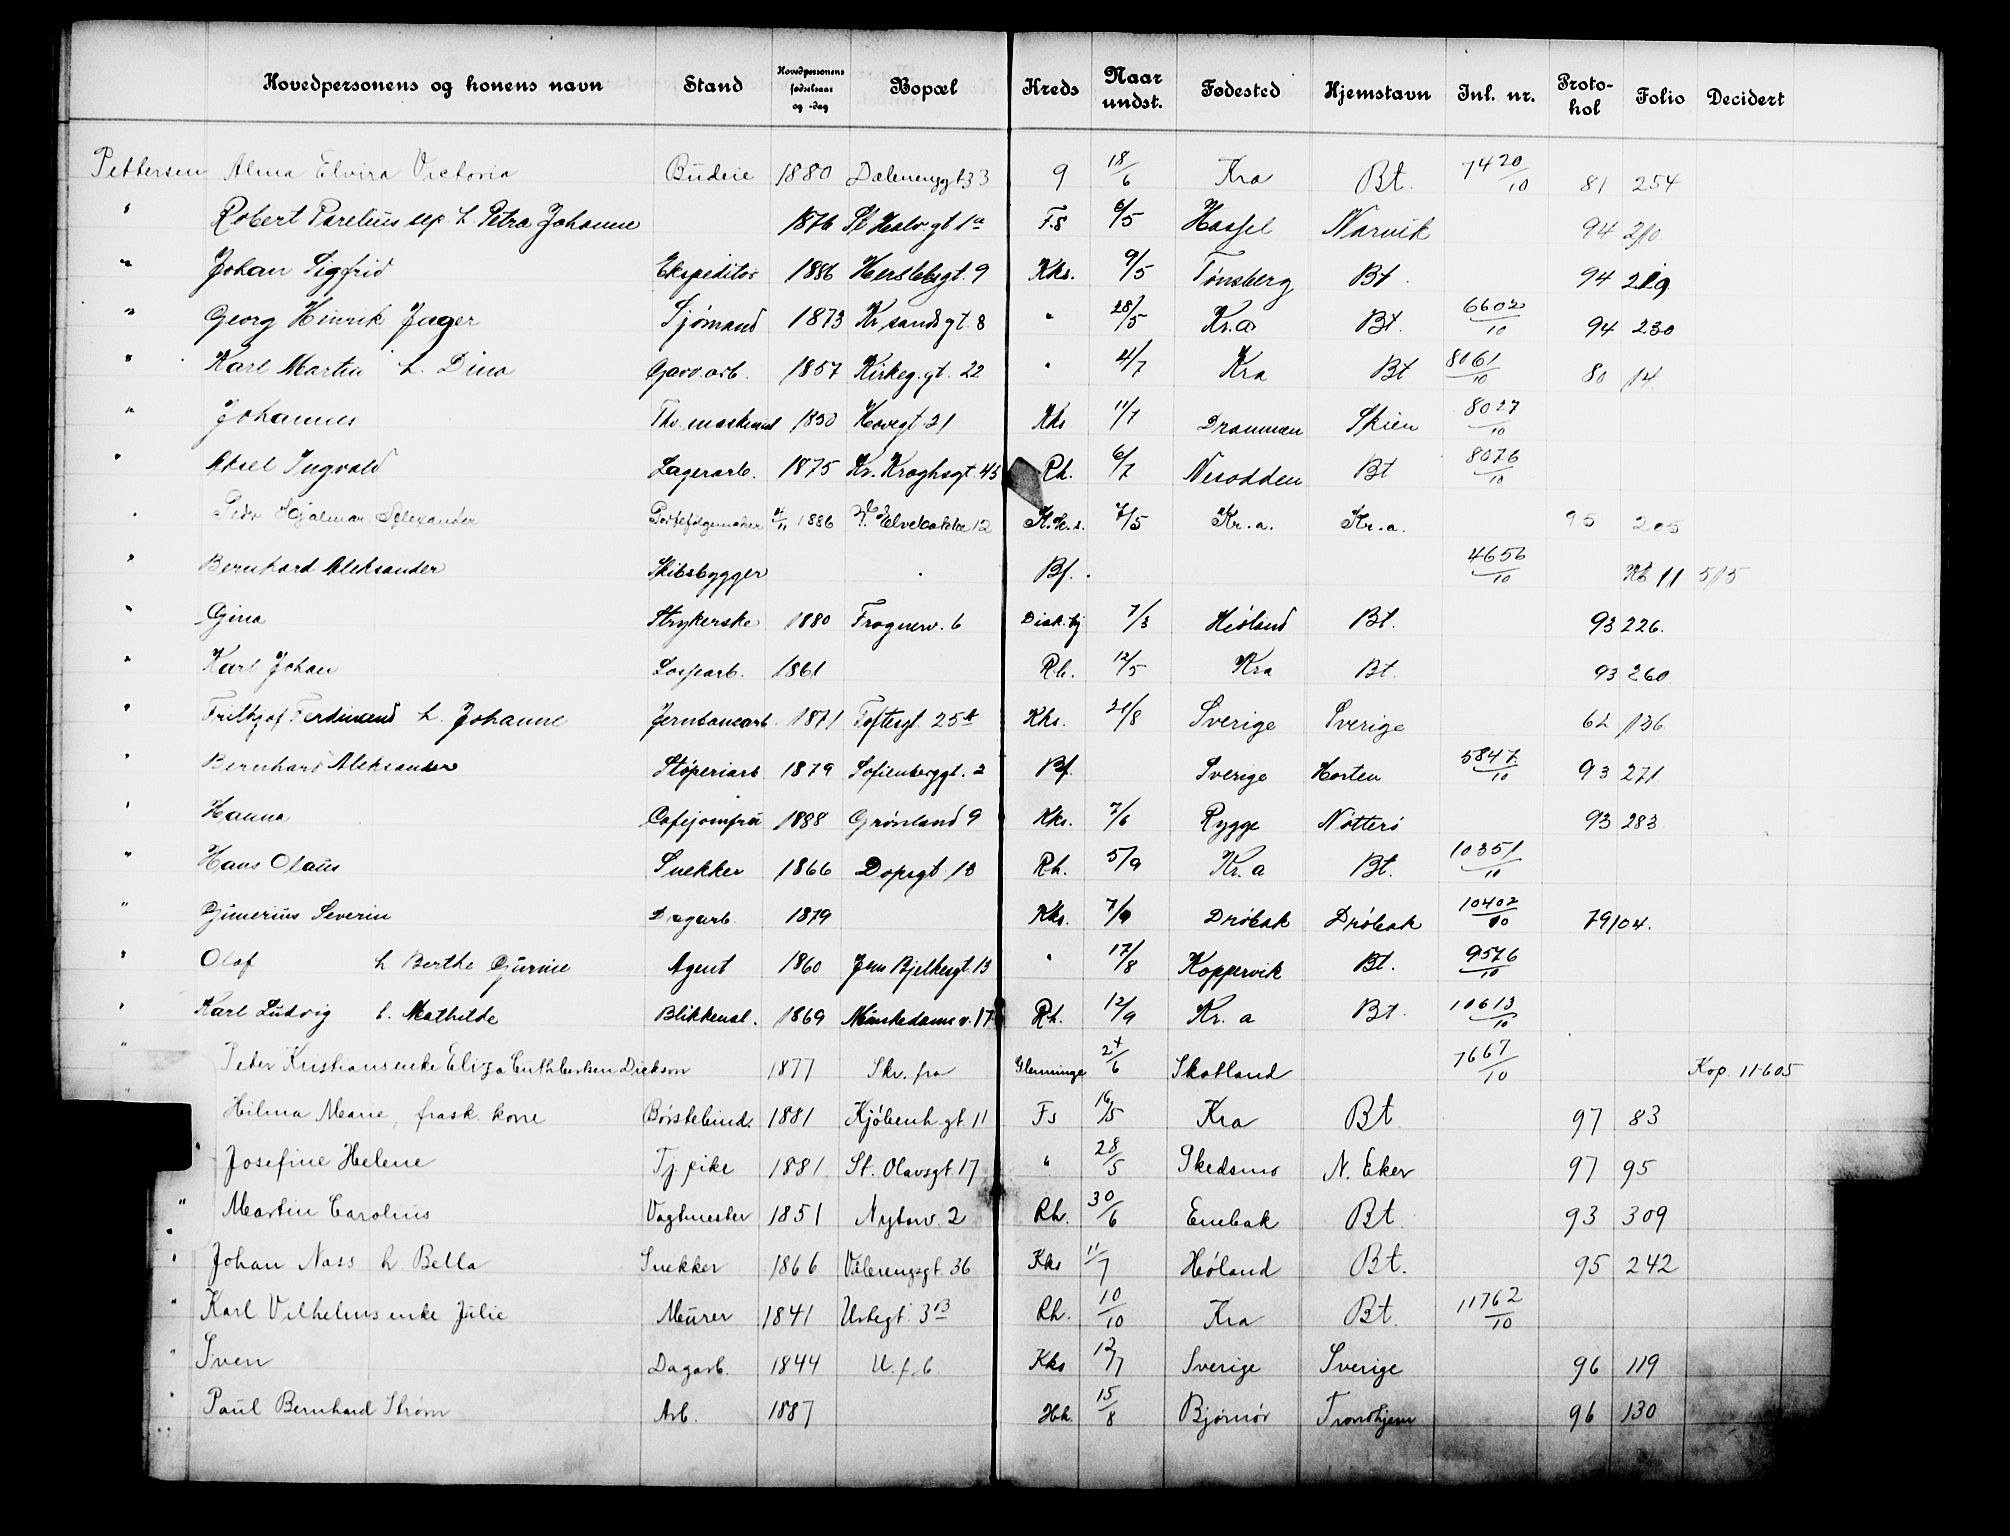 Hovedpersonens og konens navn Stand Hovedpersonens fødselsaar og -dag Bopæl Kreds Naar undst. Fødested Hjemstavn Inl. nr. Protokol Folio Decidert
Pettersen Alma Elvira Victoria Budeie 1880 Dælenenggt 33 9 18/6 Kra Bt. 7420/10 81 254
" Robert Parelius sep h. Petra Johanne 1876 St Halv.gt 1a F.S 6/5 Hassel Narvik 94 210
" Johan Sigfrid Ekspeditør 1886 Herslebsgt. 9 Kks. 9/5 Tønsberg Bt. 94 219
" Georg Hinrik Jager Sjømand 1873 Kr.sands gt. 8 " 28/5 Kr.a Bt. 6602/10 94 230
" Karl Martin h. Dina Garv.arb. 1857 Kirkeg.gt. 22 " 4/7 Kra Bt 8061/10 80 14
" Johannes 1850 Hovegt. 21 Kks 11/7 Drammen Skien 8027/10
" Aksel Ingvald Lagerarb. 1875 Kr. Kroghsgt. 45 Rh. 6/7 Nesodden Bt 8076/10
" Peder Hjalmar Alexander Portefølgemaker 1886 V. Elvebakke 12 K.k.s. 7/5 Kr.a. Kr.a. 95 205
" Bernhard Aleksander Skibsbygger Bf. 4656/10 Kb 11 515
" Gina Strykerske 1880 Frognerv. 6 Diak.hj 7/3 Høland Bt. 93 226.
" Karl Johan Losjearb. 1861 Rh. 12/5 Kra Bt. 93 260
" Frithjof Ferdinand h. Johanne Jernbanearb. 1871 Toftesgt. 25 Kks. 21/8 Sverige Sverige 62 136
" Bernhard Aleksander Støperiarb 1879 Sofienberggt. 2 Bf. Sverige Horten 5847/10 93 271
" Hanna Cafejomfru 1888 Grønland 9 Kks. 7/6 Rygge Nøtterø 93 283
" Hans Olaus Snekker 1866 Dopsgt. 13 Rh. 5/9 Kr.a Bt. 10351/10
" Gunerius Severin Dagarb. 1879 Kks. 7/9 Drøbak Drøbak 10402/10 79 104.
" Olaf h Berthe Gurine Agent 1860 Jens Bjelkesgt. 13 " 17/8 Koppervik Bt. 9576/10
" Karl Ludvig h. Mathilde Blikkensl. 1869 Munkedamsv. 17 Rh. 12/9 Kr.a Bt. 10613/10
" Peter Kristians enke Eliza Cuthbertsen Dickson 1877 Skr. fra Glemminge 24/6 Skotland 7667/10 Kop. 11-605
Hilma Marie, frask. kone Børstebind. 1881 Kjøbenh.gt. 11 Fs 16/5 Kra Bt 97 83
" Josefine Helene Tj.pike 1881 St. Olavsgt 17 " 28/5 Skedsmo N. Eker 97 95
" Martin Carolius Vagtmester 1851 Nytorv. 2 Rh. 30/6 Enebak Bt. 93 309
" Johan Nass h Bella Snekker 1866 Vålerengsgt. 36 Kks 11/7 Høland Bt. 95 242
" Karl Vilhelms enke Julie Murer 1841 Urtegt. 3B Rh. 10/10 Kra Bt. 11762/10
" Sven Dagarb. 1844 U.f.b Kks 12/7 Sverige Sverige 96 119
" Paul Bernhard Strøm Arb. 1887 Hk. 15/8 Bjørnør Trondhjem 96 130